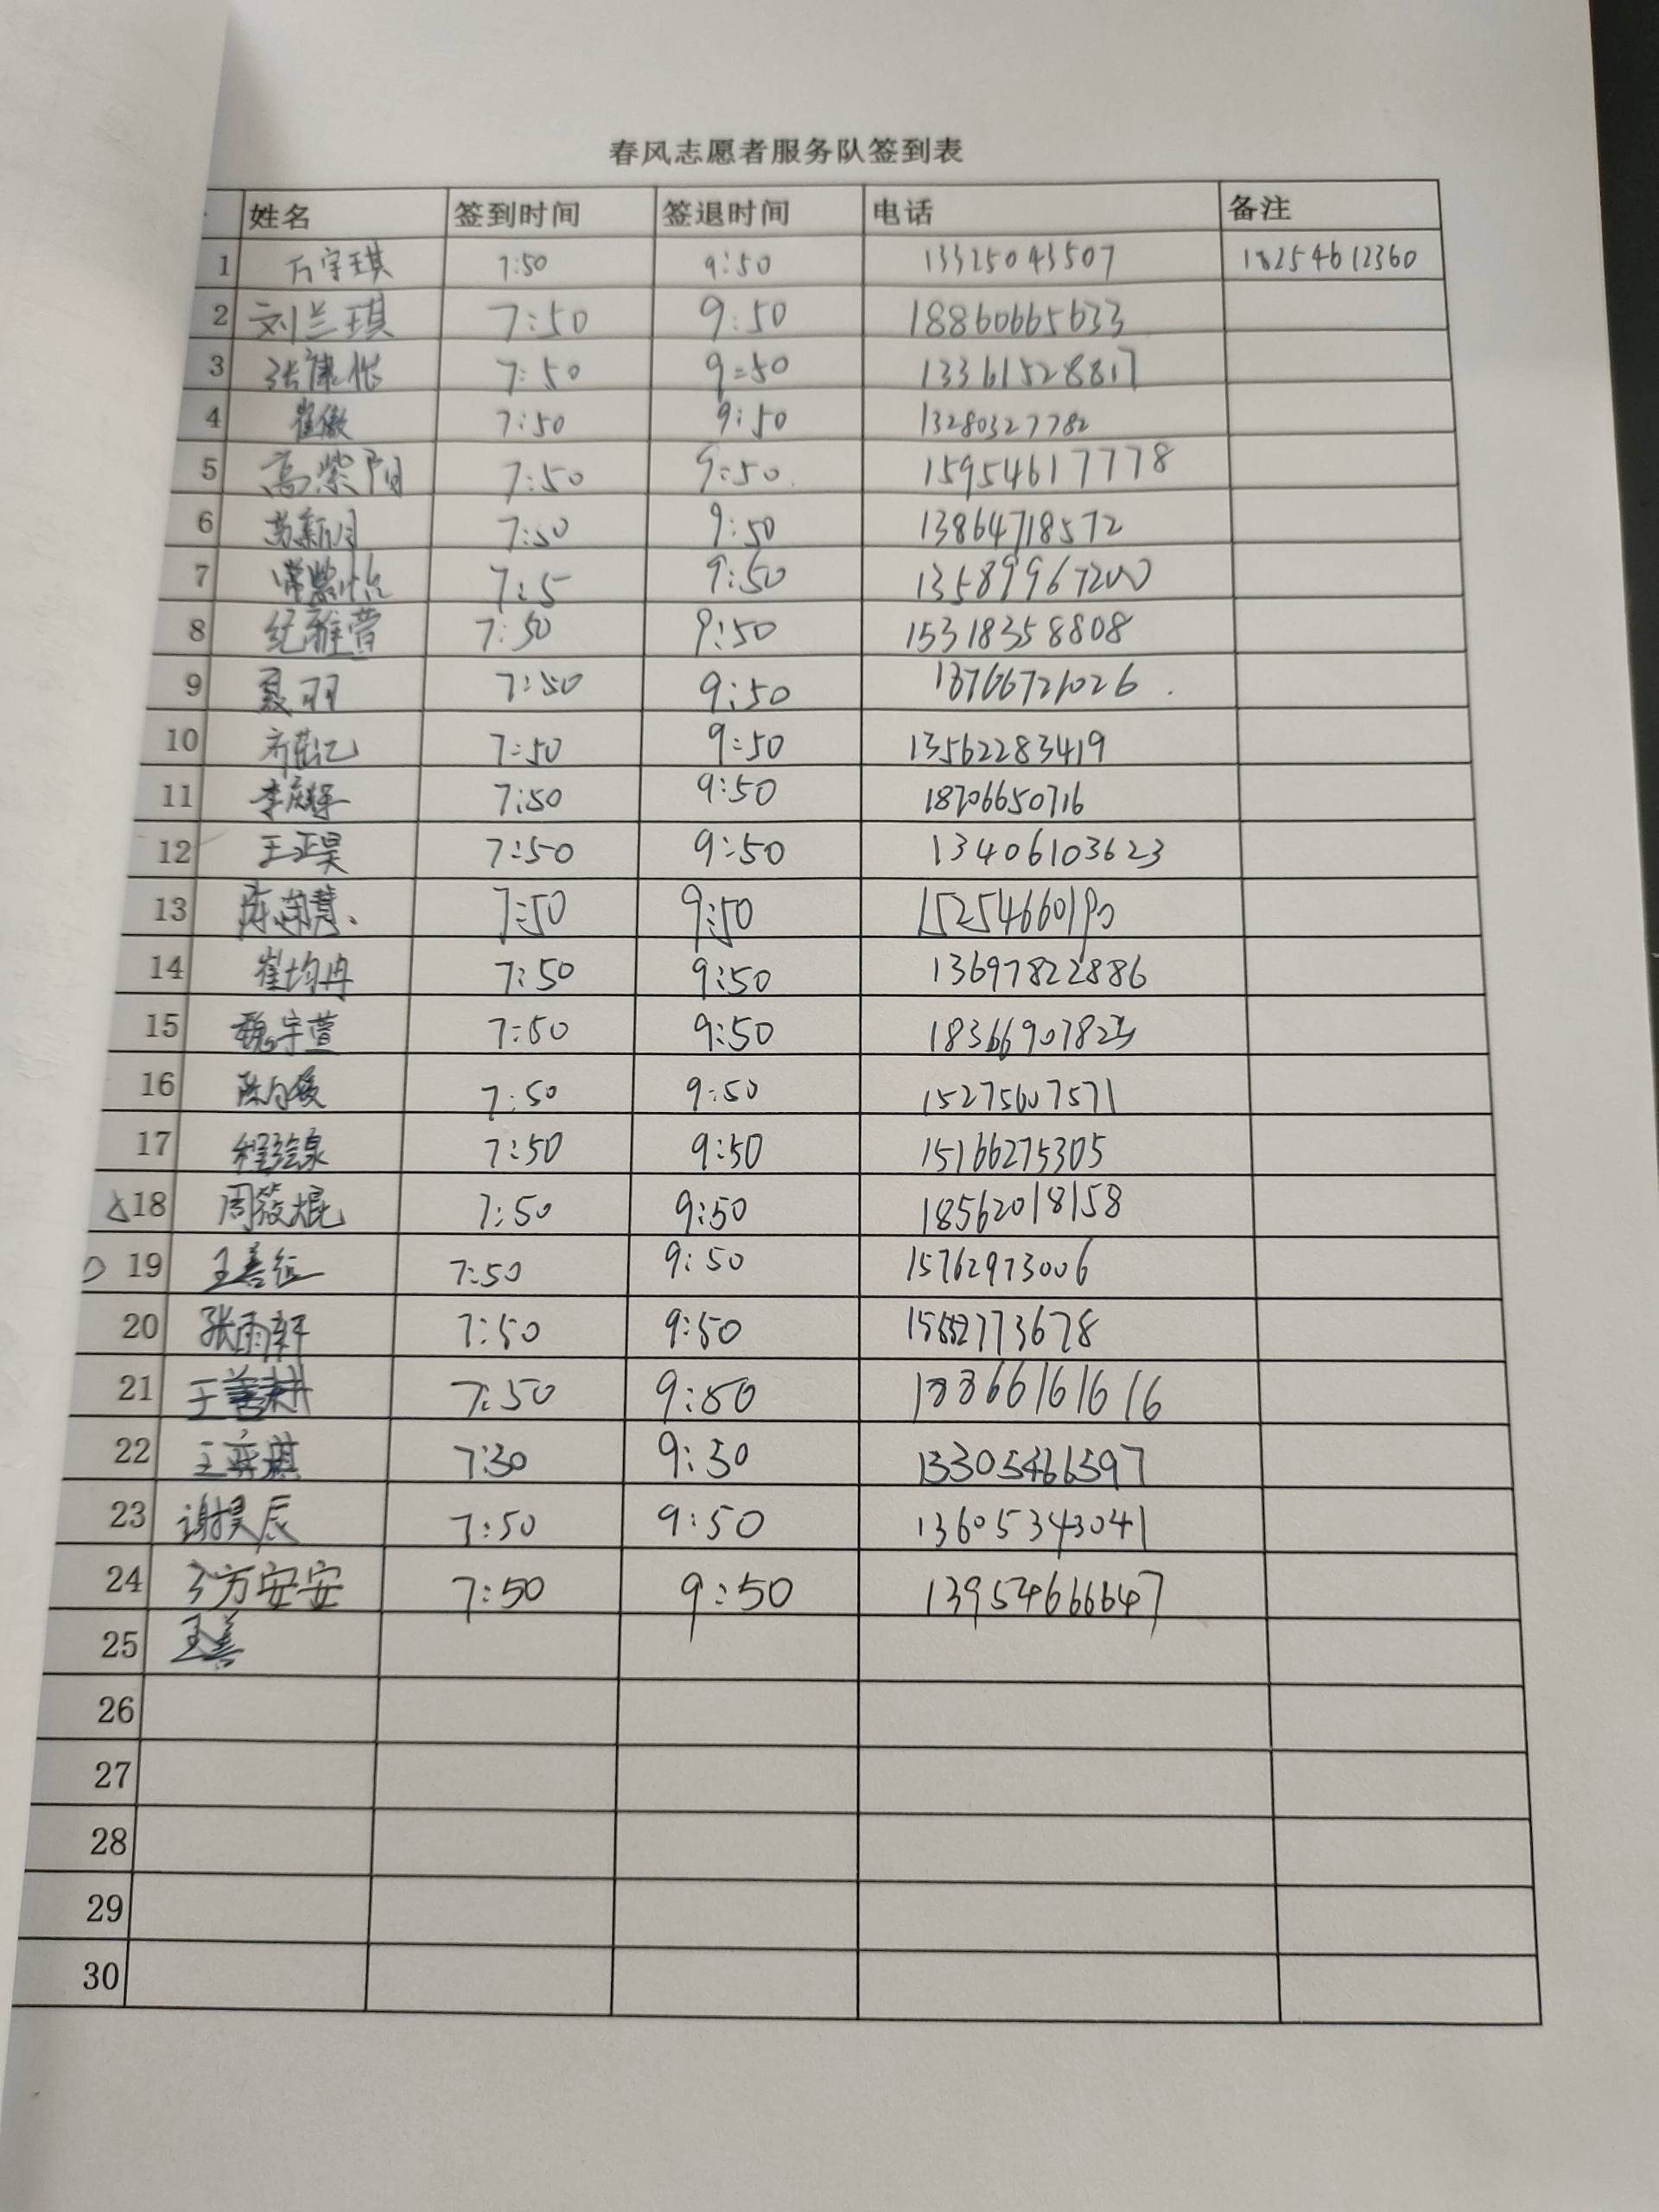 春风志愿者服务队签到表
姓名 签到时间 签退时间 电话 备注
1 万宇琪 7:50 9:50 13325043507 18254612360
2 刘兰琪 7:50 9:50 18860665633
3 张康怡 7:50 9:50 13361528817
4 崔傲 7:50 9:50 13280327782
5 高紫阳 7:50 9:50 15954617778
6 苏新月 7:50 9:50 13864718572
7 常紫怡 7:5 9:50 13589967200
8 纪雅萱 7:50 9:50 15318358808
9 夏羽 7:50 9:50 13766721026
10 7:50 9:50 13562283419
11 7:50 9:50 18706650716
12 王正昊 7:50 9:50 13406103623
13 7:50 9:50
14 崔均冉 7:50 9:50 13697822886
15 魏宇萱 7:50 9:50
16 7:50 9:50 15275607571
17 7:50 9:50 15166275305
18 周筱焜 7:50 9:50 18562018158
19 7:50 9:50 15762973006
20 张雨轩 7:50 9:50
21 7:50 9:50 18866161616
22 王奕琪 7:30 9:30
23 谢昊辰 7:50 9:50 13605343041
24 方安安 7:50 9:50 13954666647
25 王善
26
27
28
29
30